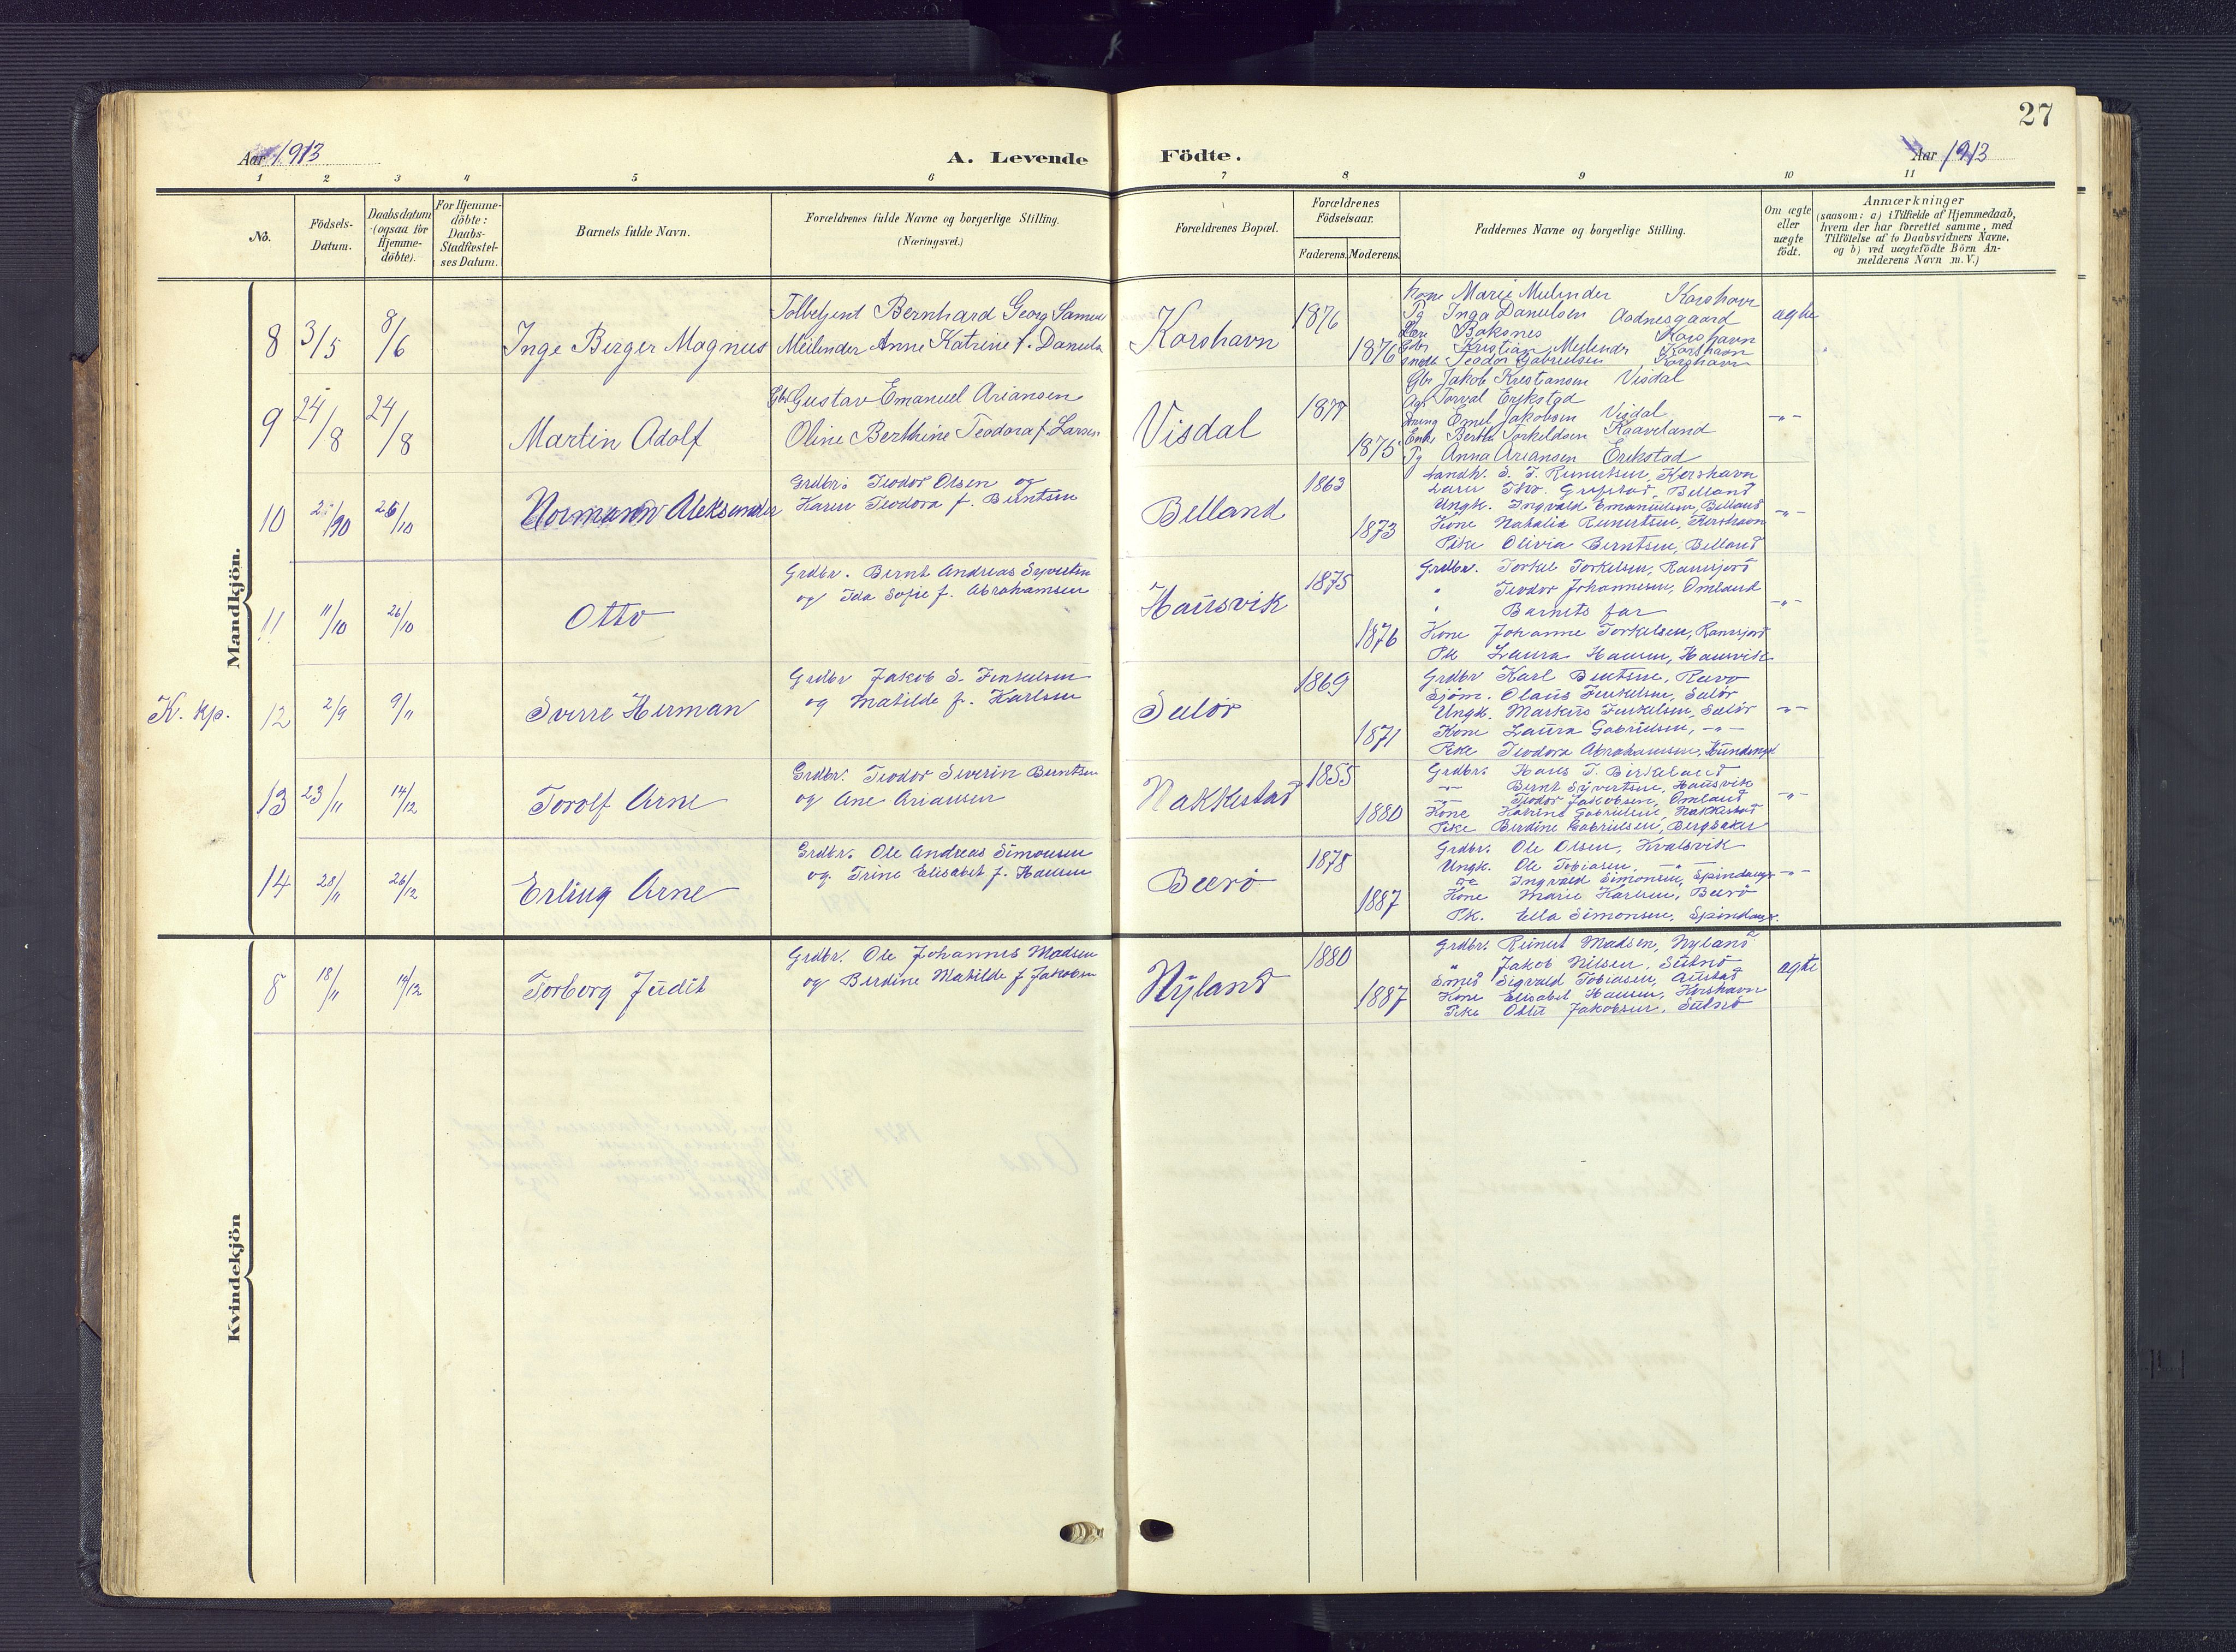 27
Aar 1913
A. Levende Födte.
Aar 1913
1 2 3 4 5 6 7 8 9 10 11
No.
Födsels-
Datum.
Daabsdatum
(ogsaa for
Hjemme-
döbte).
For Hjemme-
döbte:
Daabs-
Stadfæstel-
ses Datum.
Barnets fulde Navn.
Forældrenes fulde Navne og borgerlige Stilling.
(Næringsvei.)
Forældrenes Bopæl.
Forældrenes
Födselsaar.
Faderens. Moderens.
Faddernes Navne og borgerlige Stilling.
Om ægte
eller
uægte
födt.
Anmærkninger
(saasom: a) i Tilfælde af Hjemmedaab,
hvem der har forrettet samme, med
Tilföielse af to Daabsvidners Navne,
og b) ved uægtefödte Börn An-
melderens Navn m.V.)
Mandkjön.
8 3/5 8/6 Inge Berger Magnus
Tolbetjent Bernhard Georg
Anne Katrine f.
Korshavn 1876 1876
Kone Marie Korshavn
Pg Inga Danielsen Aadnesgaard
Korshavn
Kristian Korshavn
Teodor Gabrielsen Korshavn
ægte
9 24/8 24/8 Martin Adolf
Gbr Gustav Emanuel Ariansen
Oline Berthine Teodora f Larsen
Visdal 1877 1875
Gbr Jakob Kristiansen Visdal
Torval Erikstad
Emil Jakobsen Visdal
Enke Berthe Torkeldsen Kaaveland
Pg Anna Ariansen Erikstad
-"-
10 26/10 Normann Aleksander
Grdbr. Teodor Olsen og
Karen Teodora f. Berntsen
Belland 1863 1873
Landh. S. T. Reinertsen, Korshavn
Lærer Belland
Ungk. Ingvald Emanuelsen, Belland
Kone Nathalia Reinertsen, Korshavn
Pike Olivia Berntsen, Belland
-"-
11 11/10 26/10 Otto
Grdbr. Bernt Andreas Syvertsen
og Ida Sofie f. Abrahamsen
Haüsvik 1875 1876
Grdbr. Torkel Torkelsen, Ramsjord
" Teodor Johannesen, Omland
" Barnets far
Kone Johanne Torkelsen, Ramsjord
Pk Laura Hansen, Hausvik
-"-
K. kp. 12 2/9 9/11 Sverre Herman
Grdbr Jakob S. Fenkelsen
og Matilde f. Karlsen
Selör 1869 1871
Grdbr Karl Berntsen,
Sjöm. Olaüs Fenkelsen, Selör
Ungk. Markus Fenkelsen, Selör
Kone Laüra Gabrielsen, -"-
Pike Teodora Abrahamsen,
-"-
13 23/11 14/12 Torolf Arne
Grdbr. Teodor Severin Berntsen
og Ane Ariansen
Nakkestad 1855 1880
Grdbr. Hans T. Birkeland
-"- Bernt Syvertsen, Hausvik
-"- Teodor Jakobsen, Omland
Kone Katrine Gabrielsen, Nakkestad
Pike Berdine Gabrielsen, Bergsaker
-"-
14 28/11 26/12 Erling Arne
Grdbr. Ole Andreas Simonsen
og Trine Elisabet f. Hansen
Beerö 1878 1887
Grdbr. Ole Olsen, Kvalsvik
Ungk. Ole Tobiasen, -"-
Ingvald Simonsen,
Kone Marie Karlsen, Beerö
Pk. Ella Simonsen,
-"-
Kvindekjön
8 18/11 14/12 Torborg Jüdit
Grdbr. Ole Johannes Madsen
og Berdine Matilde f Jakobsen
Nÿland 1880 1887
Grdbr. Reinert Madsen, Nyland
" Jakob Nilsen,
Smed Sigvald Tobiasen, Aüstad
Kone Elisabet Hansen, Korshavn
Pike Jakobsen,
ægte